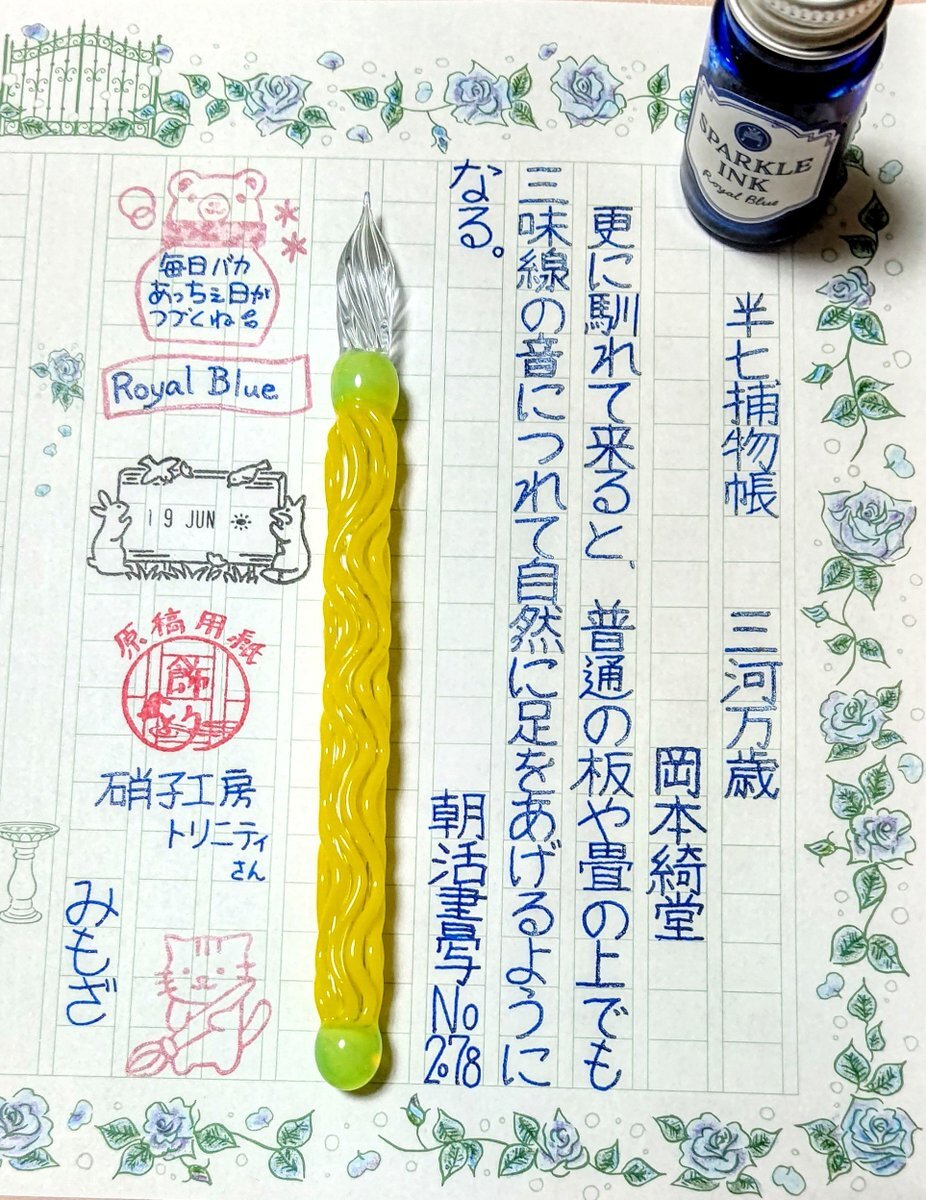 半七捕物帳　三河万歳
岡本綺堂
更に馴れて来ると、普通の板や畳の上でも
三味線の音につれて自然に足をあげるように
なる。
朝活書写No278
SPARKLE
INK
Royal Blue
毎日バカ
あっちぇ日が
つづくね
Royal Blue
19 JUN
原稿用紙
飾
硝子工房
トリニティ
さん
みもざ